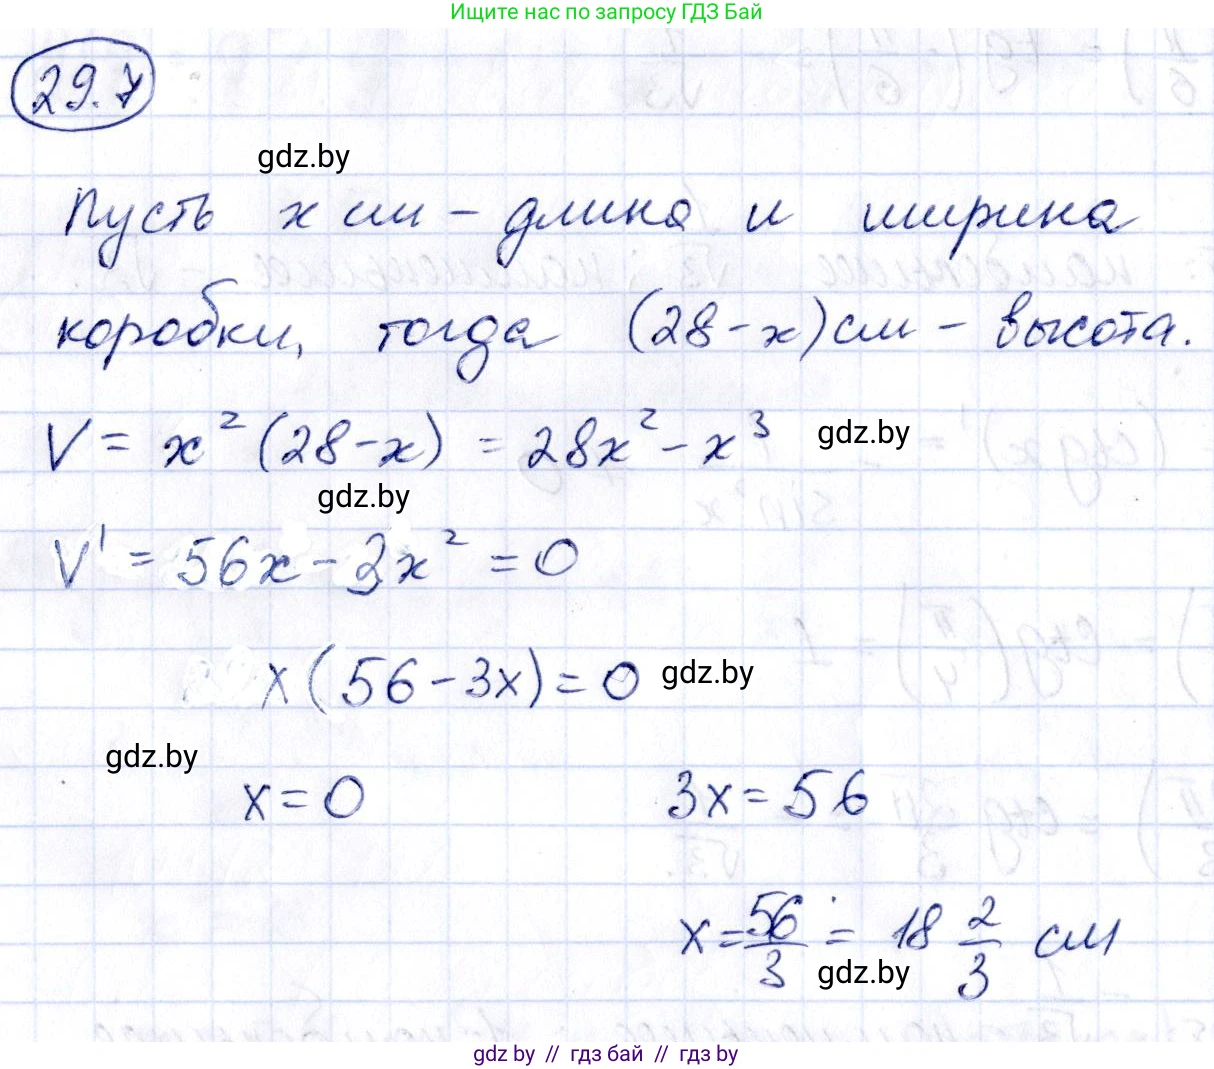 Ищите нас по запросу ГДЗ Бай
29.7
gdz.by
Пусть x см – длина и ширина
коробки, тогда (28-x) см – высота.
V = x² (28-x) = 28x² - x³ gdz.by
gdz.by
V' = 56x - 3x² = 0
x(56-3x) = 0 gdz.by
gdz.by
x = 0 3x = 56
x = 56/3 = 18 2/3 см
gdz.by
gdz by // гдз бай // гдз by